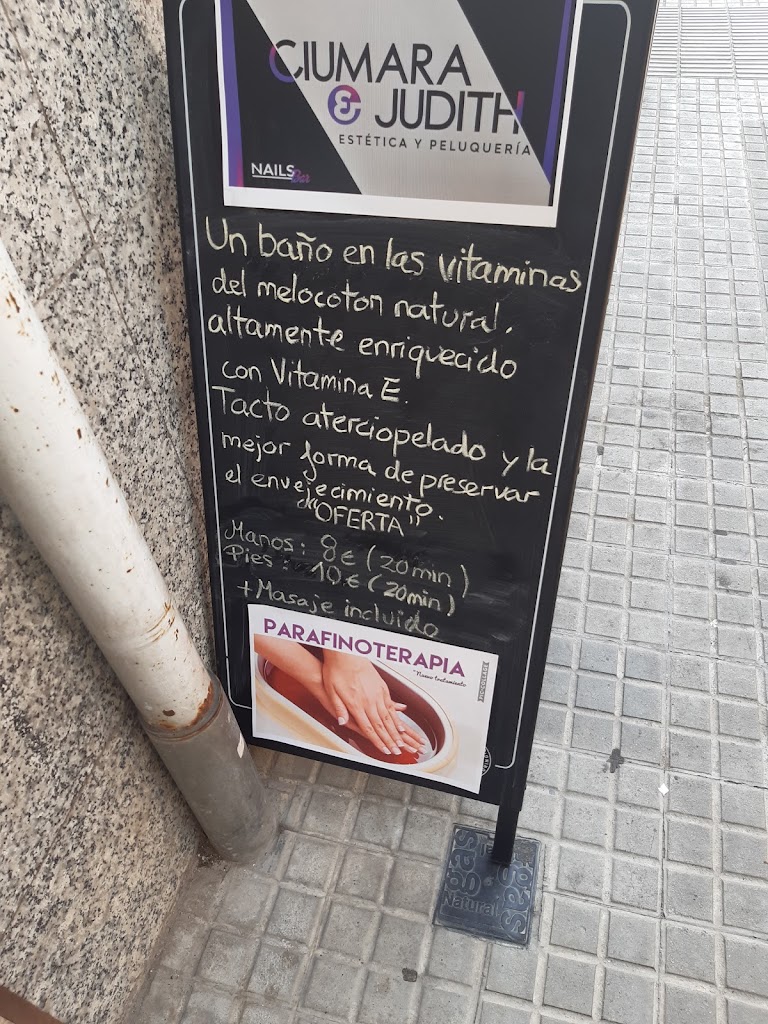 CIUMARA
& JUDITH
ESTÉTICA Y PELUQUERÍA
NAILS Bar
Un baño en las vitaminas
del melocoton natural.
altamente enriquecido
con Vitamina E.
Tacto aterciopelado y la
mejor forma de preservar
el envejecimiento.
"OFERTA"
Manos: 8€ (20min)
Pies: 10€ (20min)
+Masaje incluido
PARAFINOTERAPIA
*Nuevo tratamiento
PIC•COLLAGE
Gas
Natural